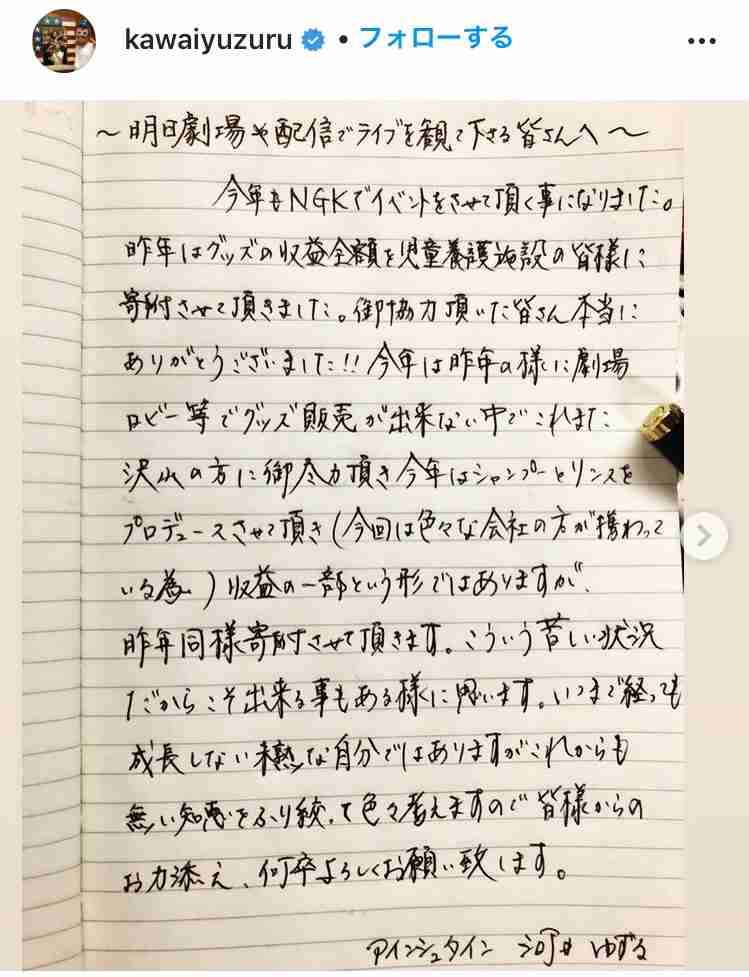 kawaiyuzuru • フォローする
〜明日劇場や配信でライブを観て下さる皆さんへ〜
今年もNGKでイベントをさせて頂く事になりました。
昨年はグッズの収益全額を児童養護施設の皆様に
寄附させて頂きました。御協力頂いた皆さん本当に
ありがとうございました!!今年は昨年の様に劇場
ロビー等でグッズ販売が出来ない中でこれまた
沢山の方に御尽力頂き今年はシャンプーとリンスを
プロデュースさせて頂き(今回は色々な会社の方が携わって
いる為)収益の一部という形ではありますが、
昨年同様寄附させて頂きます。こういう苦しい状況
だからこそ出来る事もある様に思います。いつまで経っても
成長しない未熟な自分ではありますがこれからも
無い知恵をふり絞って色々考えますので皆様からの
お力添え、何卒よろしくお願い致します。
アインシュタイン 河井ゆずる